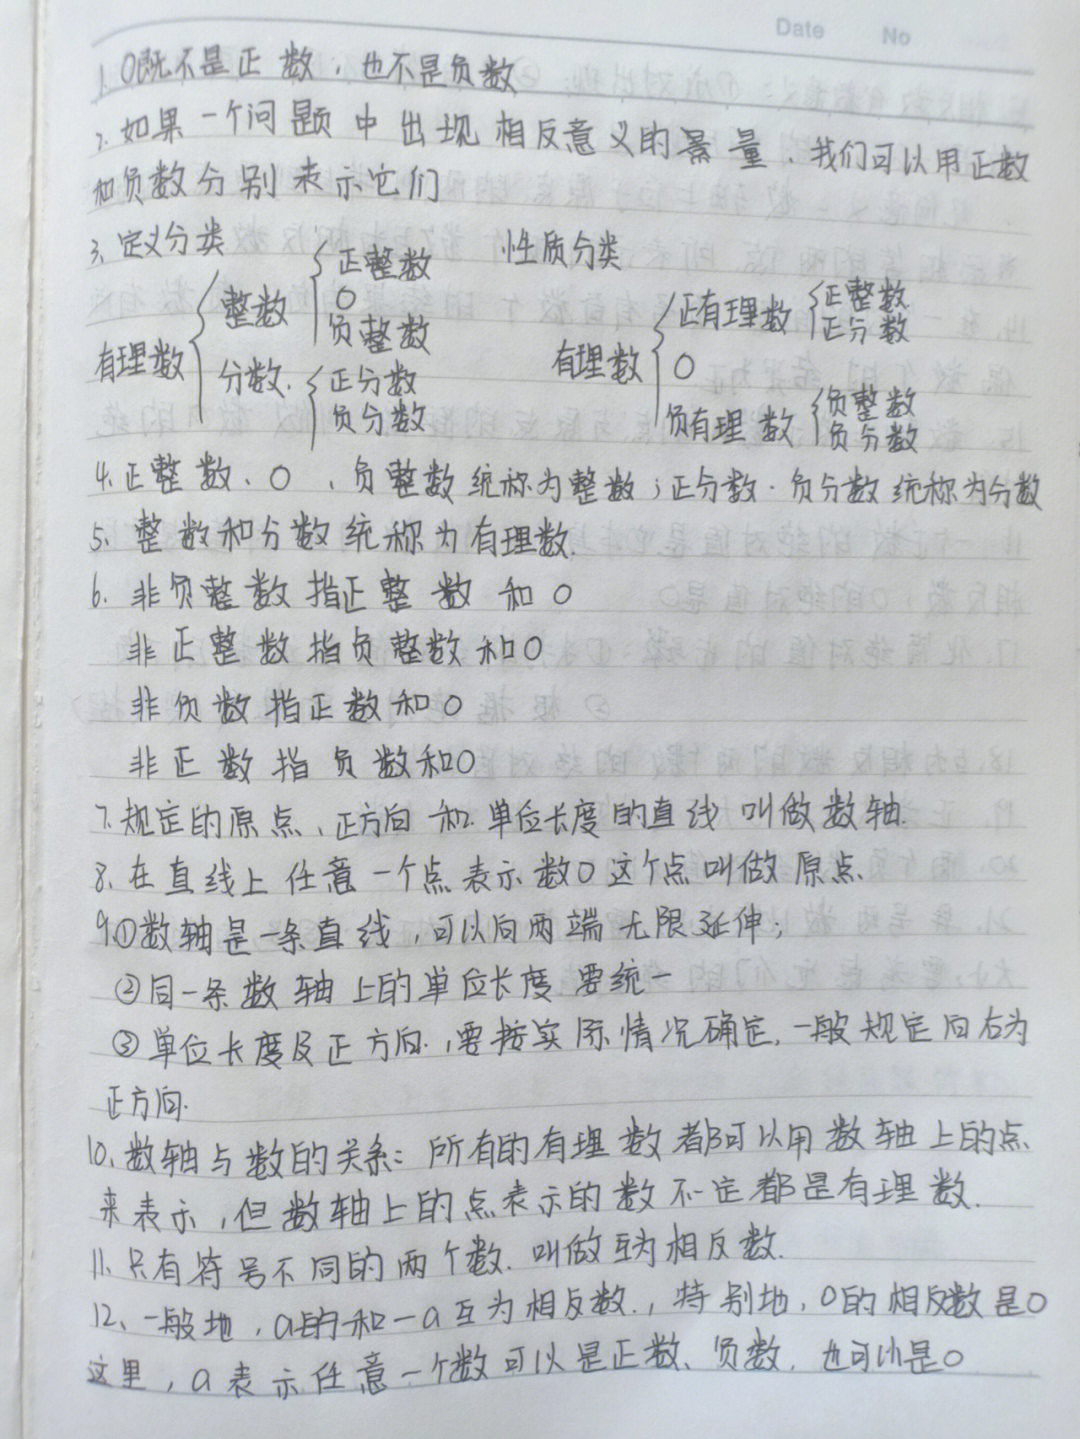 Date No
1. 0既不是正数，也不是负数
2. 如果一个问题中出现相反意义的量，我们可以用正数
和负数分别表示它们
3、定义分类 性质分类
有理数 整数 正整数 0 负整数
分数. 正分数 负分数
有理数 正有理数 正整数 正分数
0
负有理数 负整数 负分数
4、正整数、0、负整数统称为整数；正分数.负分数统称为分数
5、整数和分数统称为有理数.
6、非负整数指正整数和0
非正整数指负整数和0
非负数指正数和0
非正数指负数和0
7.规定的原点、正方向和.单位长度的直线叫做数轴.
8、在直线上任意一个点表示数0这个点叫做原点.
9.①数轴是一条直线，可以向两端无限延伸；
②同一条数轴上的单位长度要统一
③单位长度及正方向.，要按实际情况确定,一般规定向右为
正方向.
10、数轴与数的关系：所有的有理数都可以用数轴上的点
来表示，但数轴上的点表示的数不一定都是有理数.
11.只有符号不同的两个数.叫做互为相反数.
12、一般地，a的和-a互为相反数.，特别地，0的相反数是0
这里，a表示任意一个数可以是正数、负数，也可以是0